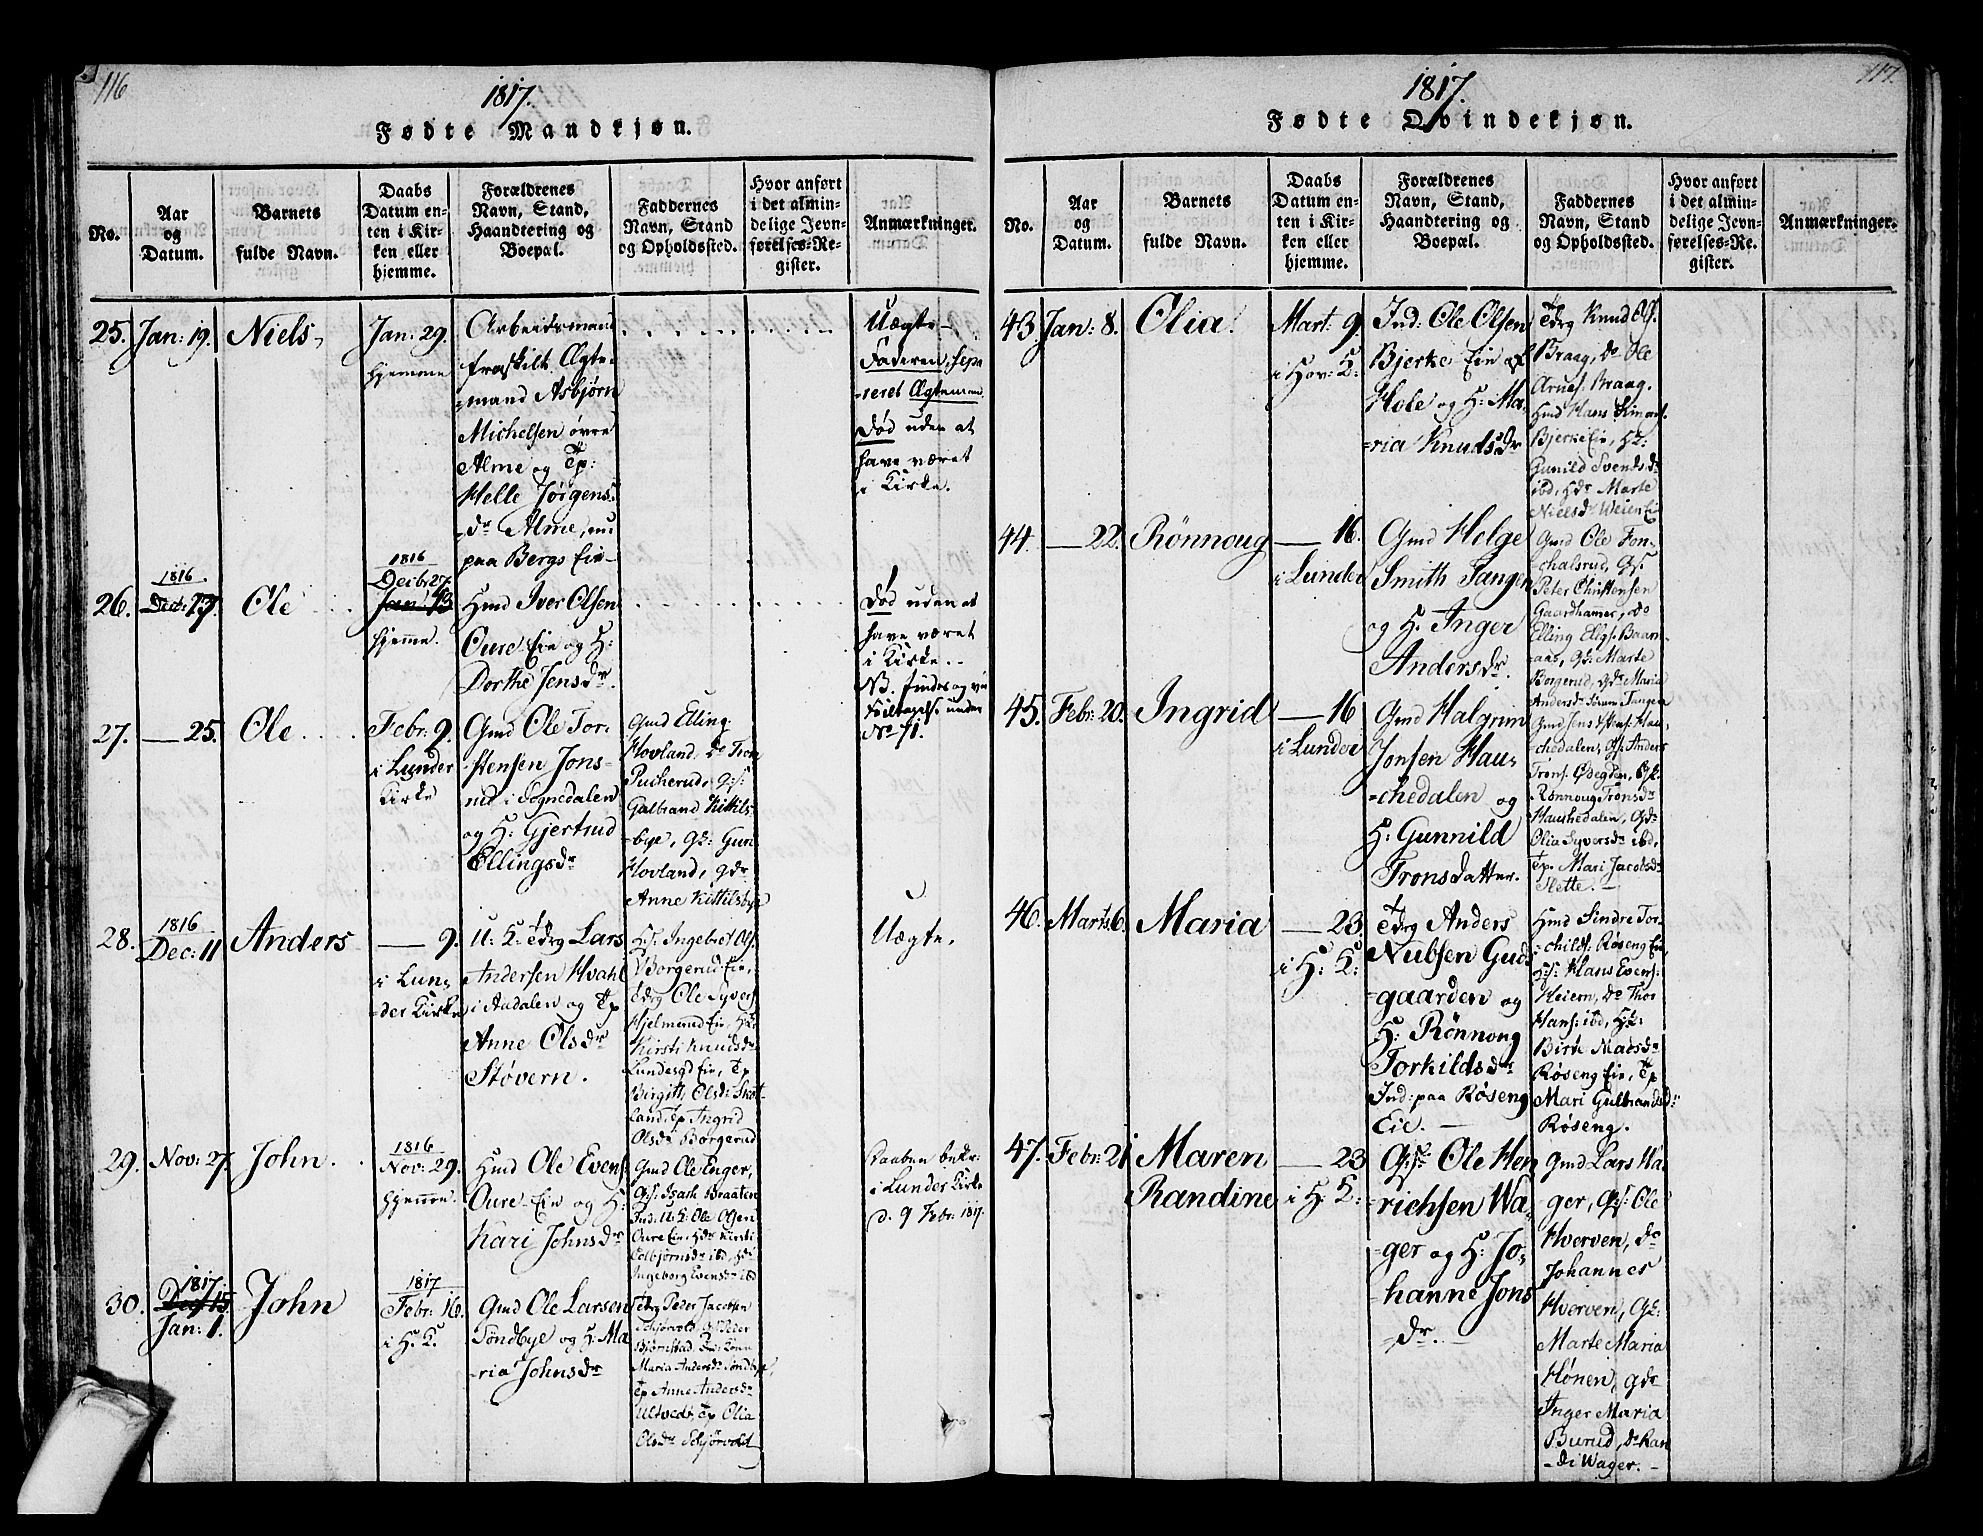 116
1817.
Fødte Mandkjøn.
No.
Aar
og
Datum.
Barnets
fulde Navn.
Daabs
Datum en-
ten i Kir-
ken eller
hjemme.
Forældrenes
Navn, Stand,
Haandtering og
Boepæl.
Faddernes
Navn, Stand
og Opholdssted.
Hvor anført
i det almin-
delige Jevn-
førelses-Re-
gister.
Anmærkninger.
25. Jan: 19. Niels
Jan: 29.
hjemme
Arbeidsmand
fraskilt Ægte-
=mand Asbjørn
Michelsen øvre
Alme og Tp:
Helle Jørgens-
dr Alme, nu
paa Bergs Eie
Uægte
Faderen, sepa
=reret Ægtemand.
Død uden at
have været
i Kirke.
26.
1816.
Dec: 27. Ole
1816
Decbr 27.
Jan: 13
hjemme.
Hmd Iver Olsen
Oure Eie og H:
Dorthe Jensdr.
Død uden at
have været
i Kirke.
NB. findes og ved
under
No 71.
27. — 25. Ole
Febr: 9.
i Lunder
Kirke
Gmd Ole Tor-
stensen Jons-
rud i Sognedalen
og H: Gjertrud
Ellingsdr
Gmd Elling
Hovland, Do Tron
Pucherud, G:S:
Gulbrand Kittils-
=bye, GK: Gun
Hovland, Gdr
Anne Kittilsbye
28.
1816
Dec: 11 Anders
— 9.
i Lun-
=der Kirke
U: K: Tdrg Lars
Andersen Hvahl
i Aadalen og Tp
Anne Olsdr
Støvern.
H:S: Ingebret Ols:
Borgerud Eie,
Tdrg Ole Syvers:
Hjelmerud Eie, HK:
Kirsti Knudsdr
Lundesgd Eie, Tp
Birgitt, Olsdr Skot-
land, Tp Ingrid
Olsdr Borgerud
Uægte.
29. Nov: 27. John.
1816
Nov: 29.
hjemme.
Hmd Ole Evens:
Oure Eie og H:
Kari Johnsdr
Gmd Ole Enger,
G:S: Isach Braaten
Ind: U: K: Ole Olsen
Oure Eie, Hdr Kirsti
Edbjørnsdr ibd, Hdr
Ingeborg Evensdr ibd
Daaben bekr:
i Lunder Kirke
d. 9 Febr: 1817.
30.
1817.
Dec: 15
Jan: 1. John
1817
Febr: 16.
i H: K:
Gmd Ole Larsen
Tøndbye og H: Ma
=ria Johnsdr
Tdrg Peder Jacobsen
Schjørvold, G:S: Peder
Bjørnstad,
Maria Andersdr Tøndbye,
Tp Anne Andersdr
Ultvedt, Tp Olia
Olsdr Schjørvold
117
1817.
Fødte Qvindekjøn.
No.
Aar
og
Datum.
Barnets
fulde Navn.
Daabs
Datum en-
ten i Kir-
ken eller
hjemme.
Forældrenes
Navn, Stand,
Haandtering og
Boepæl.
Faddernes
Navn, Stand
og Opholdssted.
Hvor anført
i det almin-
delige Jevn-
førelses-Re-
gister.
Anmærkninger.
43. Jan: 8. Olia.
Mart: 9.
i Hov: K:
Ind: Ole Olsen
Bjerke Eie af
Hole og H: Ma-
=ria Knudsdr
Tdrg Knud Ols:
Braag, Do Ole
Arnes: Braag.
Hmd Hans
Bjerke Eie, HK:
Gunild Svendsdr
ibd, Hdr Marte
Nielsdr Weien Eie
44. — 22. Rønnoug
— 16.
i Lunder
Gmd Helge
Smith Tangen
og H: Inger
Andersdr.
Gmd Ole Fon-
chalsrud, GS:
Peter Christensen
Gaardhamer, do
Elling Ellgs: Baarn-
aas, GK: Marte
Borgerud, Gdr Maria
Andersdr Tangen
45. Febr: 20. Ingrid
— 16
i Lunder
Gmd Halgrim
Jonsen Hau-
=chedalen og
H: Gunnild
Tronsdatter.
Gmd Jens Hau-
chedalen, G:S: Anders
Trons: Øvegden,
Rønnoug Tronsdr
Haushedalen, Gdr
Olia Syversdr ibd,
Tp. Mari Jacobsdr
Slette. —
46. Marts 6. Maria
— 23.
i H: K:
Tdrg Anders
Nubsen Gud-
=gaarden og
H: Rønnoug
Torkildsdr
Ind: paa Røseng
Eie. —
Hmd Sindre Tor-
=childs: Røseng Eie,
H:S: Hans Evens:
Heiern, Do Thor
Hans: ibd, HK:
Birte Madsdr
Røseng Eie, Tp
Mari Gulbrandsd:
Røseng.
47. Febr: 21 Maren
Randine
— 23
i H: K:
G:S: Ole Hen
richsen Wa-
=ger og H: Jo-
hanne Jons
=dr. —
Gmd Lars Wa-
ger, G:S: Ole
Hverven, do
Johannes
Hverven, GK:
Marte Maria
Hønen, Gdr
Inger Maria
Burud, Do Ran
=di Wager. —